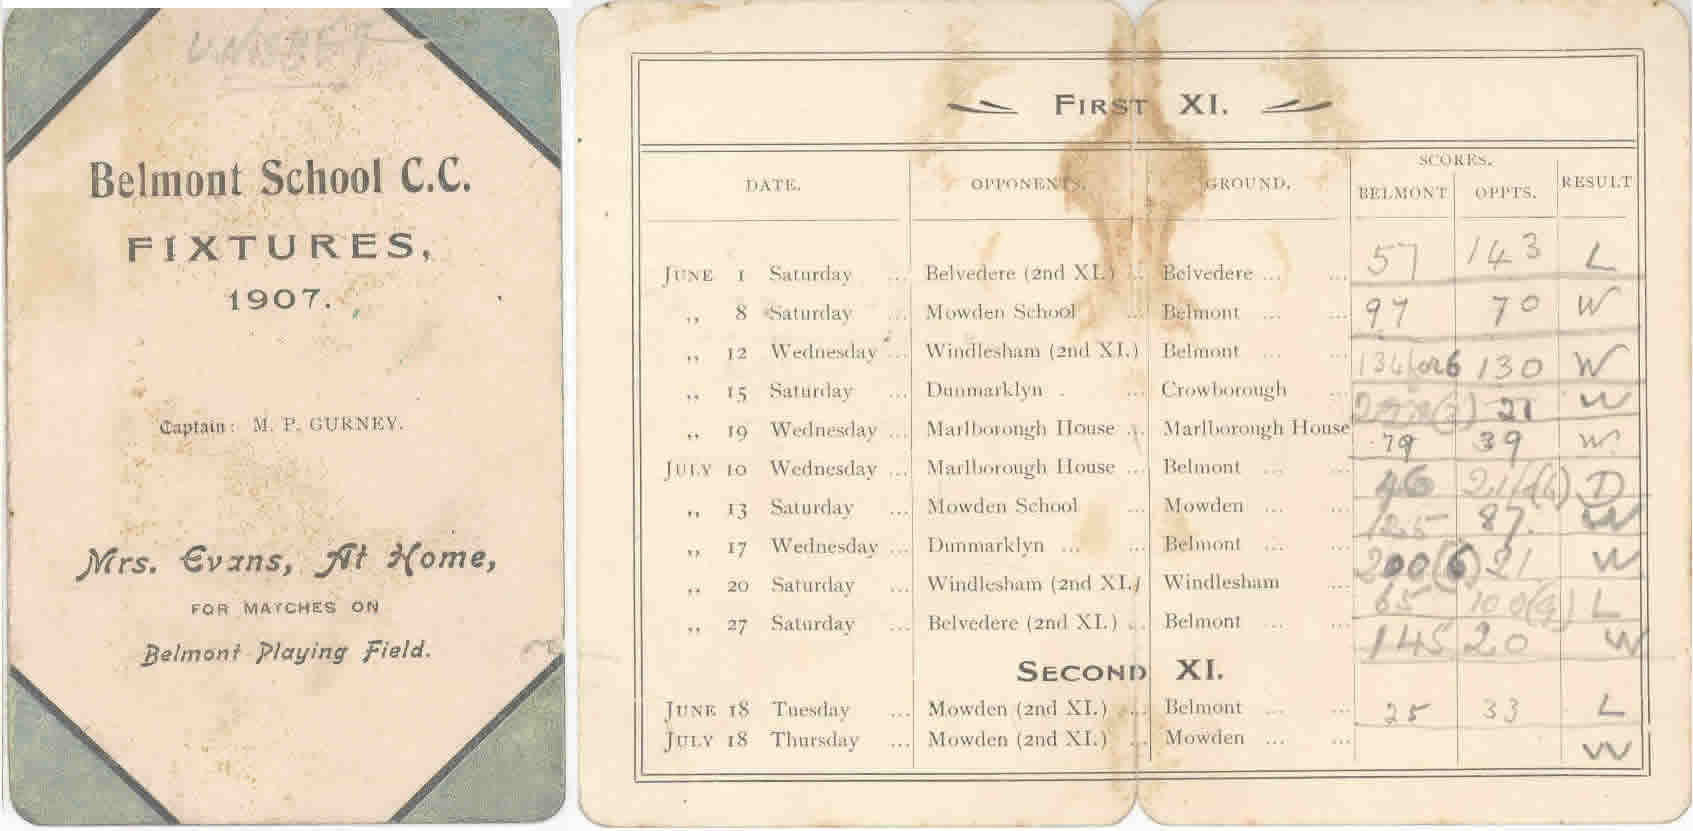 Belmont School C.C.
FIXTURES,
1907.
Captain: M. P. GURNEY.
Mrs. Evans, At Home,
FOR MATCHES ON
Belmont Playing Field.
FIRST XI.
DATE. OPPONENTS. GROUND. SCORES. BELMONT OPPTS. RESULT
JUNE 1 Saturday ... Belvedere (2nd XI.) ... Belvedere ... ... 57 143 L
,, 8 Saturday ... Mowden School ... Belmont ... ... 97 70 W
,, 12 Wednesday ... Windlesham (2nd XI.) Belmont ... ... 134 for 6 130 W
,, 15 Saturday ... Dunmarklyn . ... Crowborough ... 21 W
,, 19 Wednesday ... Marlborough House ... Marlborough House 79 39 W
JULY 10 Wednesday ... Marlborough House ... Belmont ... ... 46 D
,, 13 Saturday ... Mowden School ... Mowden ... ... 125 87 W
,, 17 Wednesday ... Dunmarklyn ... ... Belmont ... ... 200 (6) 21 W
,, 20 Saturday ... Windlesham (2nd XI.) Windlesham ... 65 100 (9) L
,, 27 Saturday ... Belvedere (2nd XI.) ... Belmont ... ... 145 20 W
SECOND XI.
JUNE 18 Tuesday ... Mowden (2nd XI.) ... Belmont ... ... 25 33 L
JULY 18 Thursday ... Mowden (2nd XI.) ... Mowden ... ... W